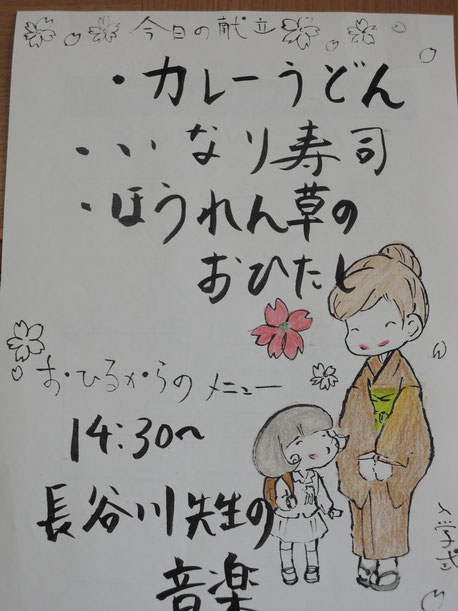 今日の献立
・カレーうどん
・いなり寿司
・ほうれん草の
おひたし
おひるからのメニュー
14:30〜
長谷川先生の
音楽
入学式